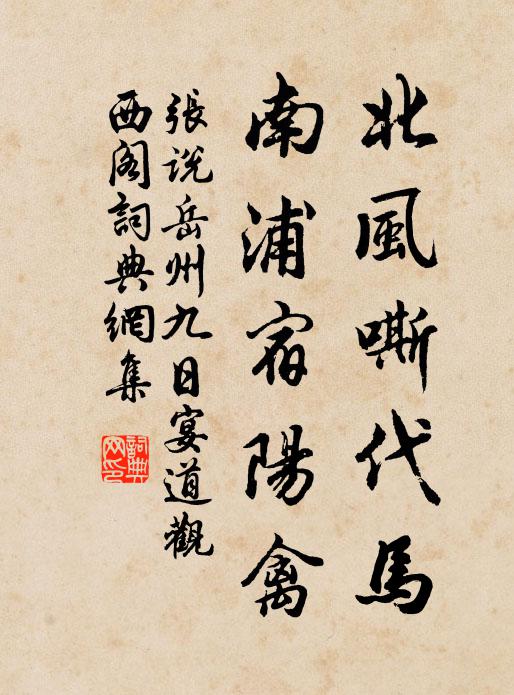 北風嘶代馬
南浦宿陽禽
張說岳州九日宴道觀
西閣詞典網集
詞典網印